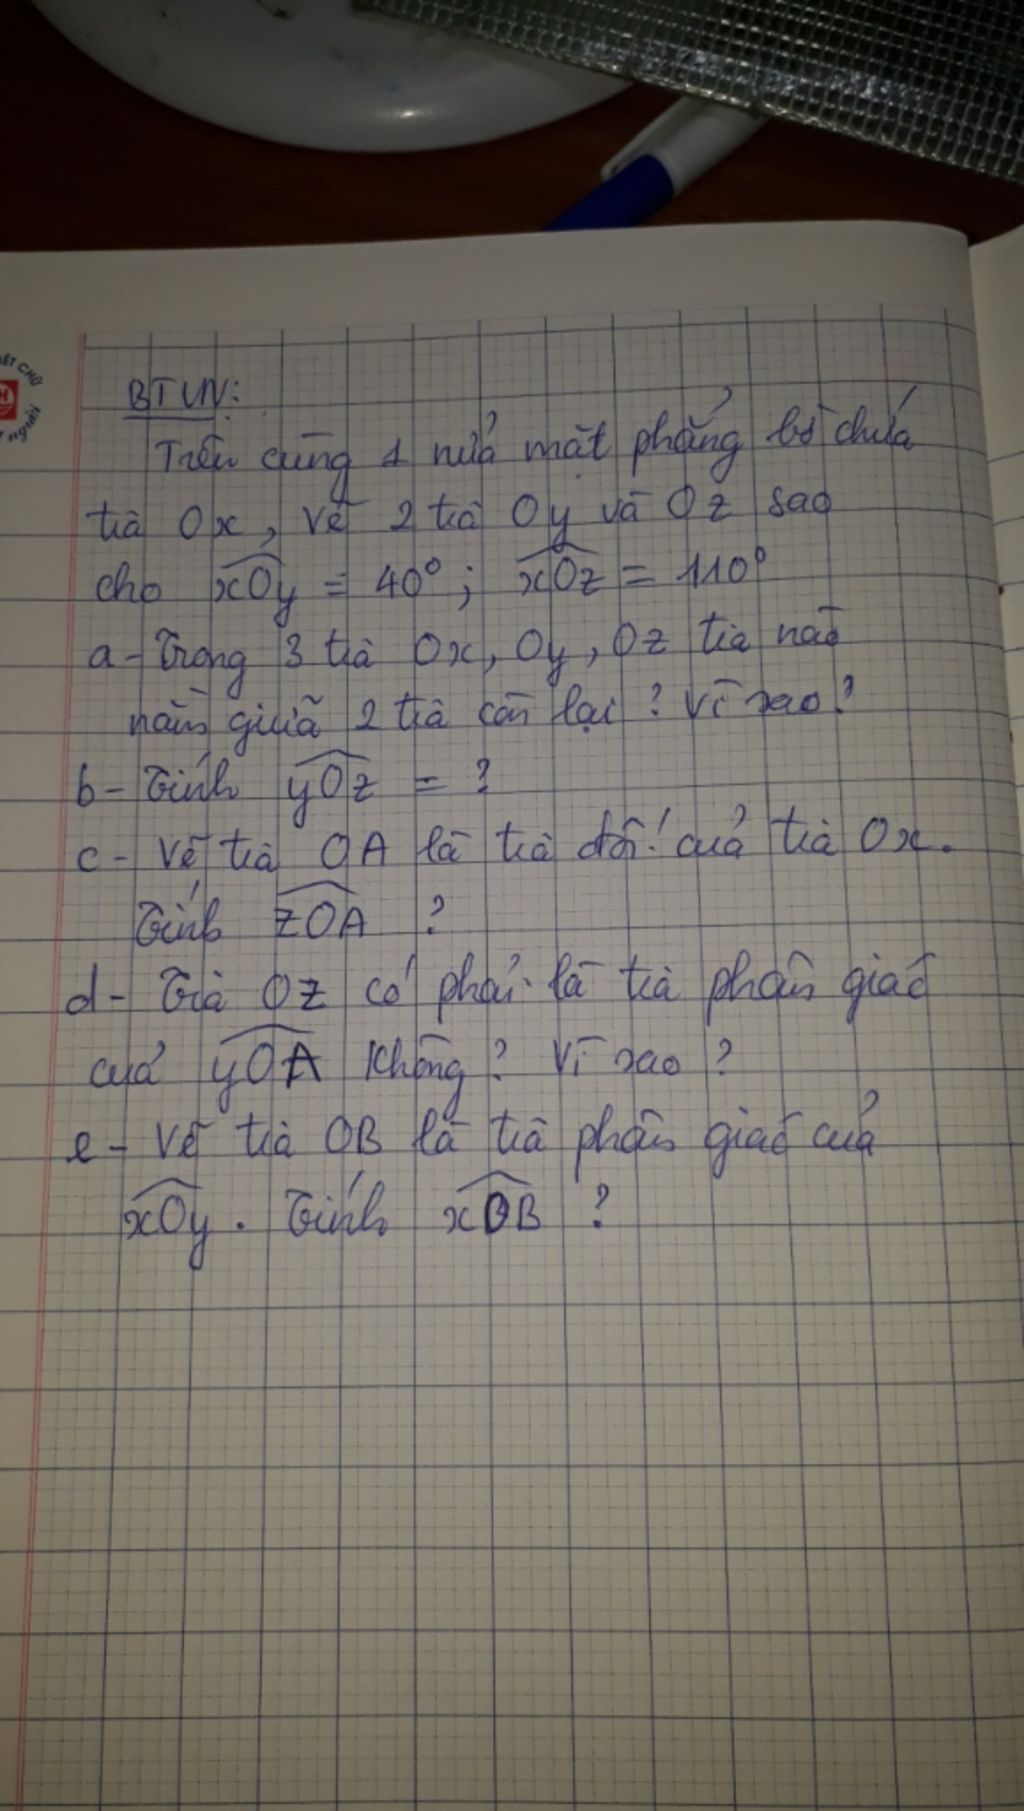 BTVN:
Trên cùng 1 nửa mặt phẳng bờ chứa
tia Ox, vẽ 2 tia Oy và Oz sao
cho xOy = 40° ; xOz = 110°
a- Trong 3 tia Ox, Oy, Oz tia nào
nằm giữa 2 tia còn lại ? Vì sao ?
b- Tính yOz = ?
c- Vẽ tia OA là tia đối của tia Ox.
Tính zOA ?
d- Tia Oz có phải là tia phân giác
của yOA không ? Vì sao ?
e- Vẽ tia OB là tia phân giác của
xOy . Tính xOB ?
ẾT CHỮ
người